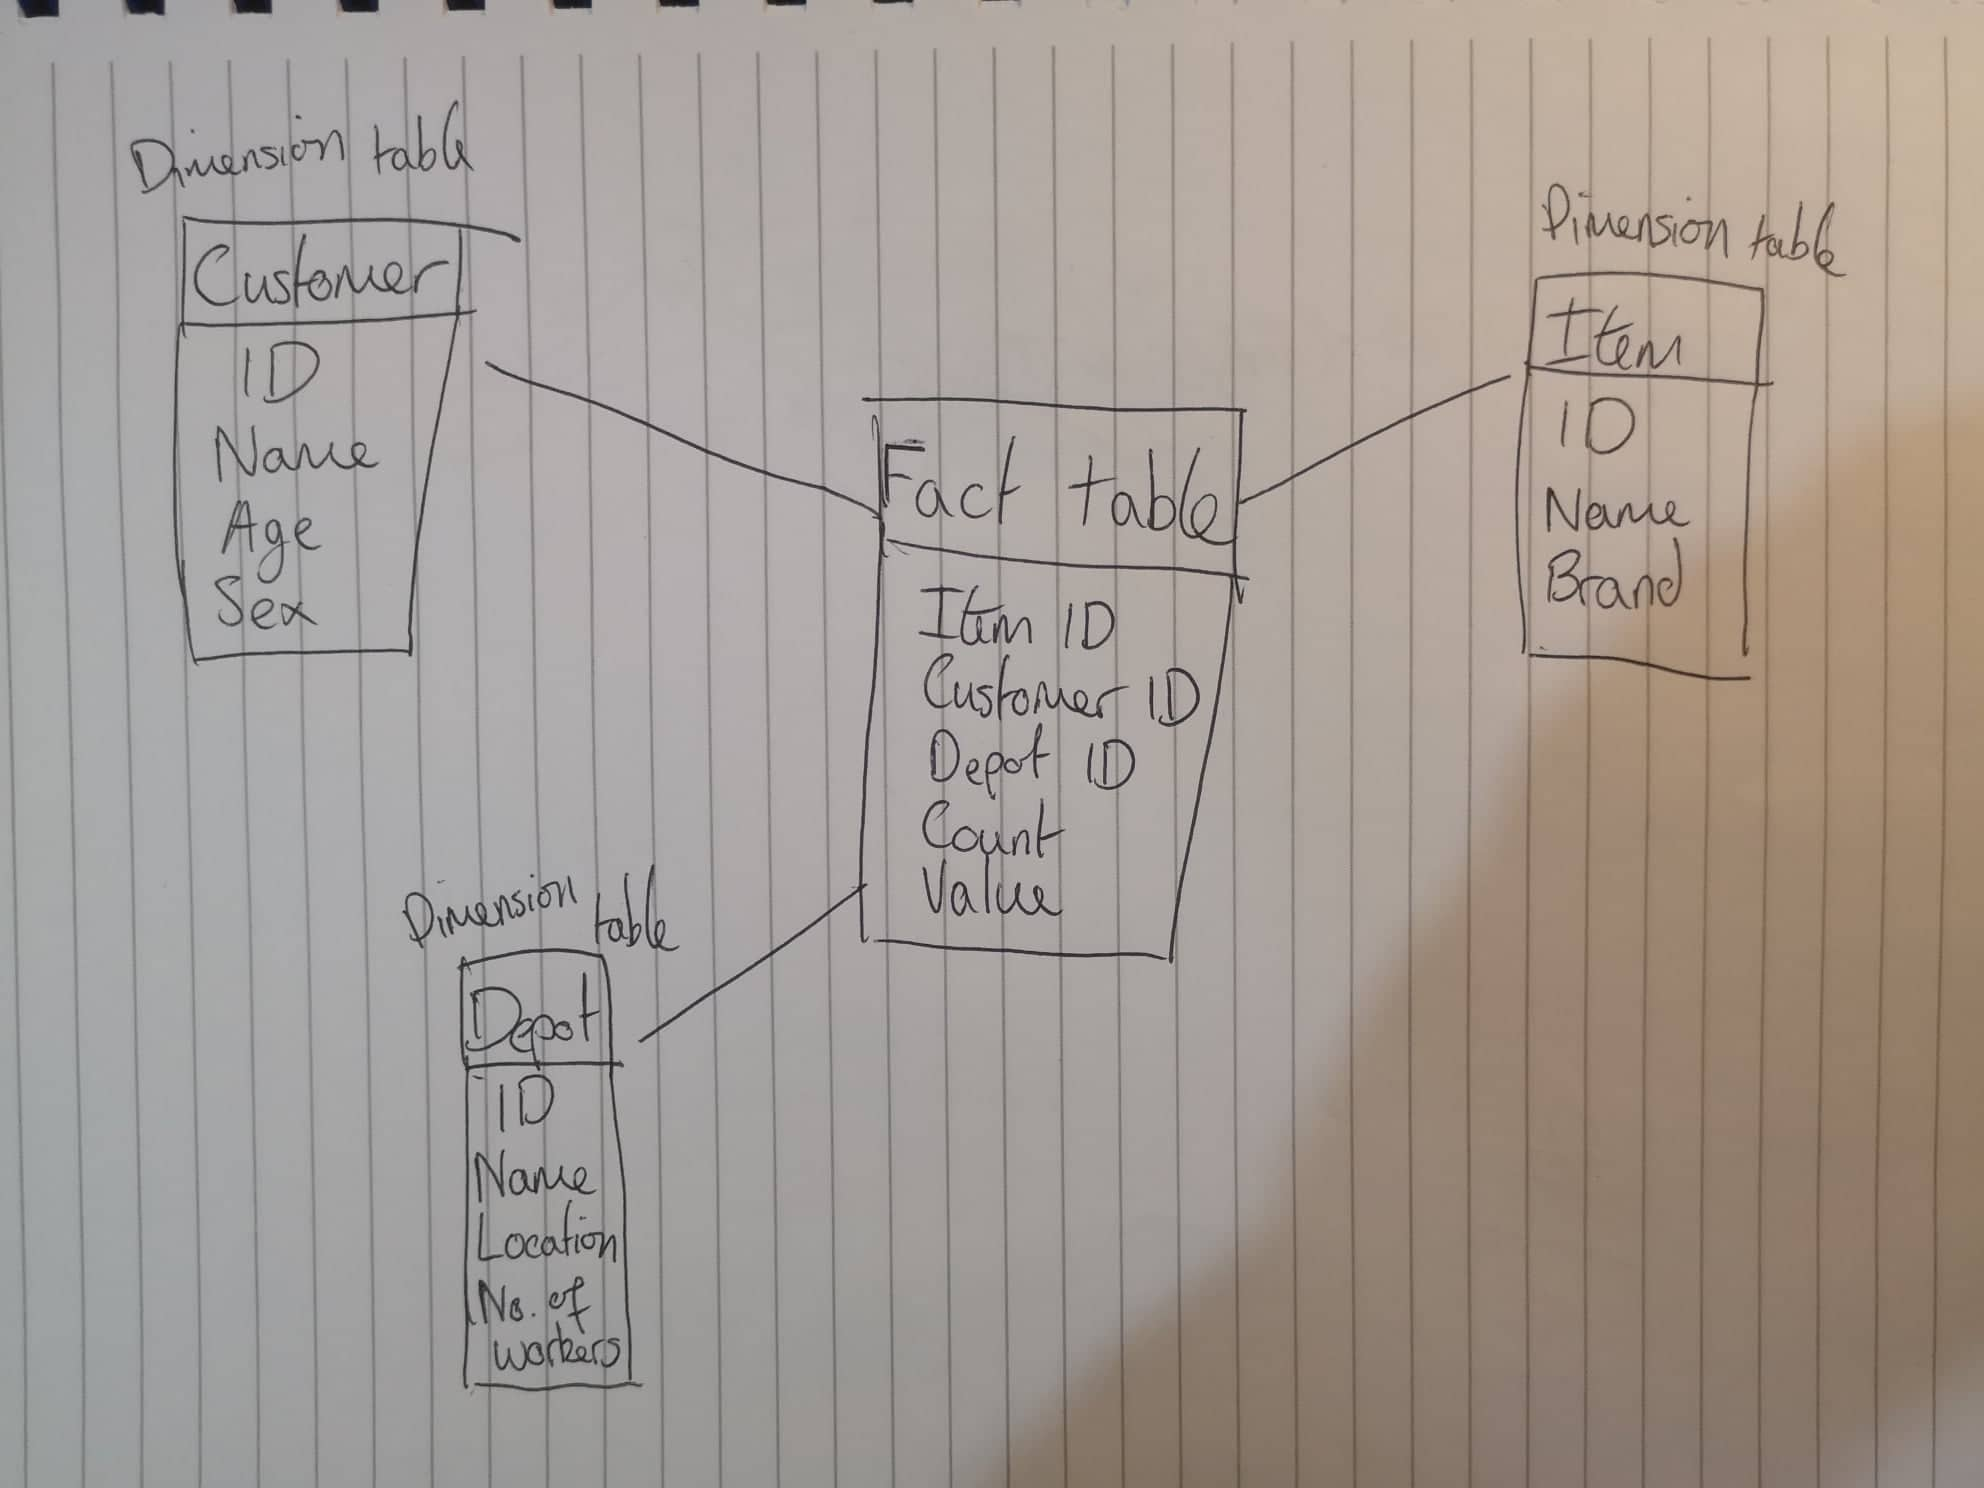 Dimension table
Customer
ID
Name
Age
Sex
Dimension table
Item
ID
Name
Brand
Fact table
Item ID
Customer ID
Depot ID
Count
Value
Dimension table
Depot
ID
Name
Location
No. of
workers